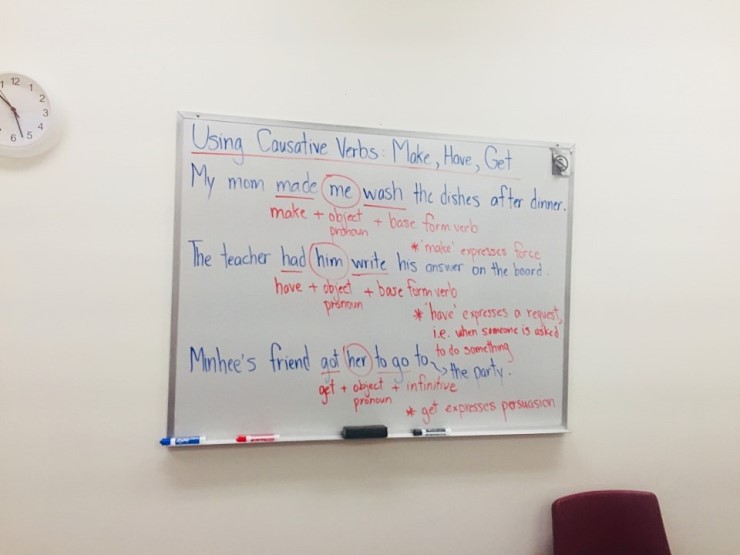 Using Causative Verbs: Make, Have, Get
My mom made me wash the dishes after dinner.
make + object pronoun + base form verb
* 'make' expresses force
The teacher had him write his answer on the board.
have + object pronoun + base form verb
* 'have' expresses a request,
i.e. when someone is asked
to do something
Minhee's friend got her to go to
the party.
get + object pronoun + infinitive
* get expresses persuasion
12
1
2
3
4
5
6